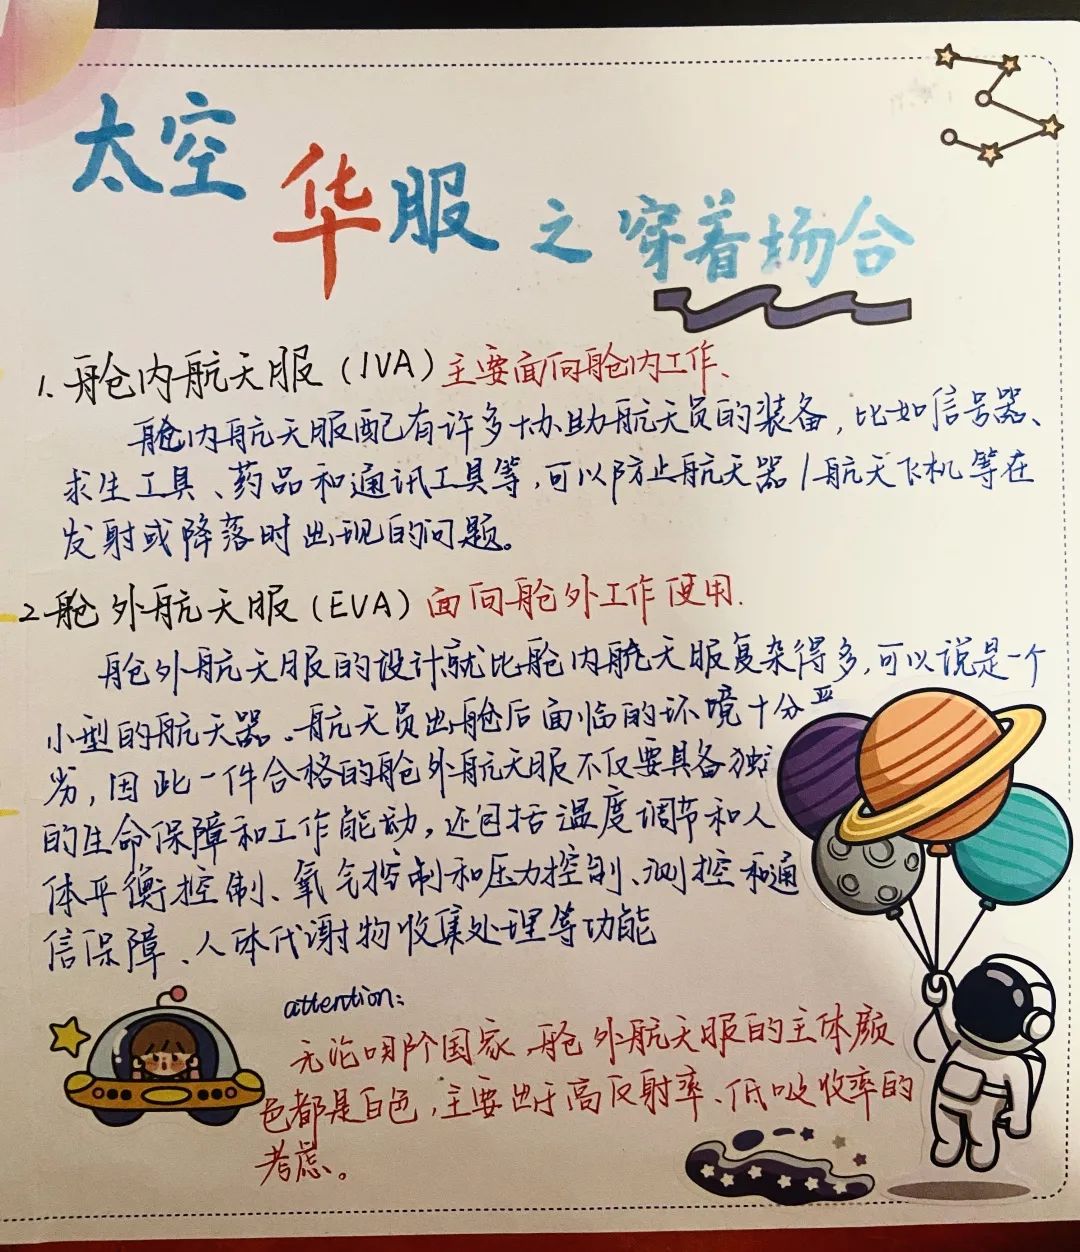 太空华服之穿着场合
1. 舱内航天服（IVA）主要面向舱内工作、
舱内航天服配有许多协助航天员的装备，比如信号器、
求生工具、药品和通讯工具等，可以防止航天器/航天飞机等在
发射或降落时出现的问题。
2. 舱外航天服（EVA）面向舱外工作使用.
舱外航天服的设计就比舱内航天服复杂得多，可以说是一个
小型的航天器．航天员出舱后面临的环境十分
劣，因此一件合格的舱外航天服不仅要具备独
的生命保障和工作能动，还包括温度调节和人
体平衡控制、氧气控制和压力控制、测控和通
信保障、人体代谢物收集处理等功能
attention:
无论哪个国家，舱外航天服的主体颜
色都是白色，主要出于高反射率、低吸收率的
考虑。